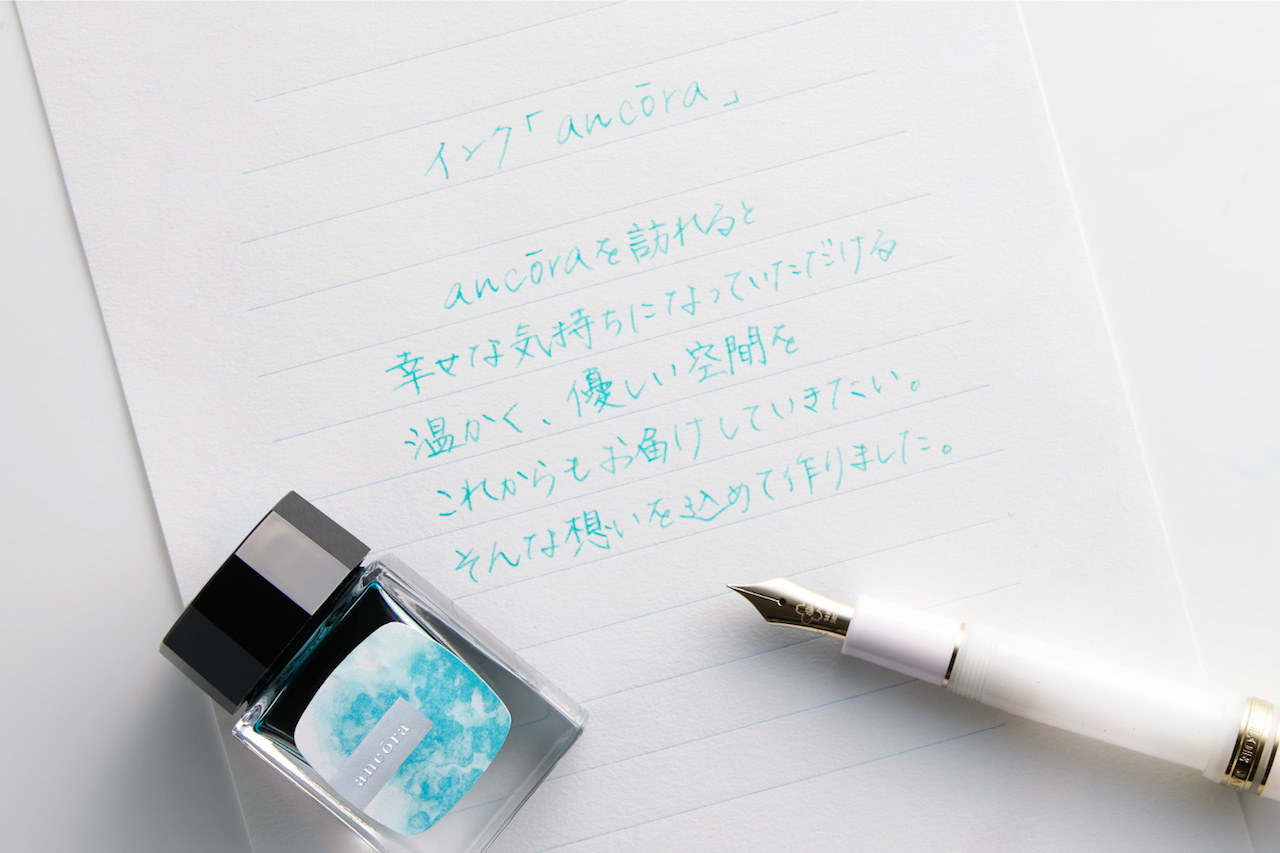 インク「ancōra」
ancōraを訪れると
幸せな気持ちになっていただける
温かく、優しい空間を
これからもお届けしていきたい。
そんな想いを込めて作りました。
ancōra